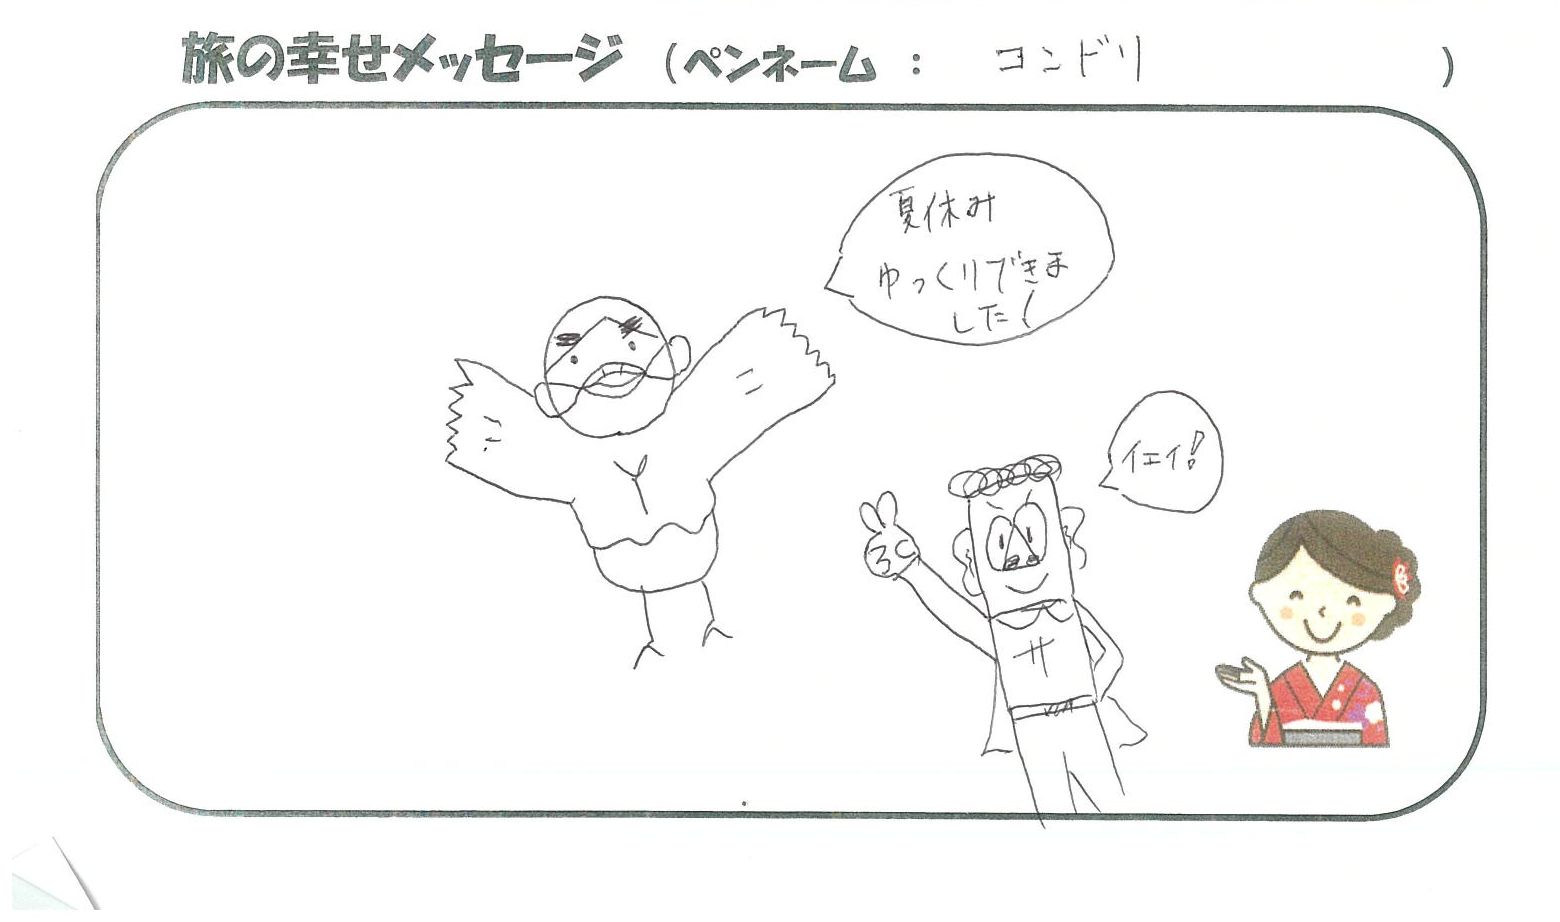 旅の幸せメッセージ (ペンネーム : コンドリ )
夏休み
ゆっくりできま
した!
イエイ!
サ